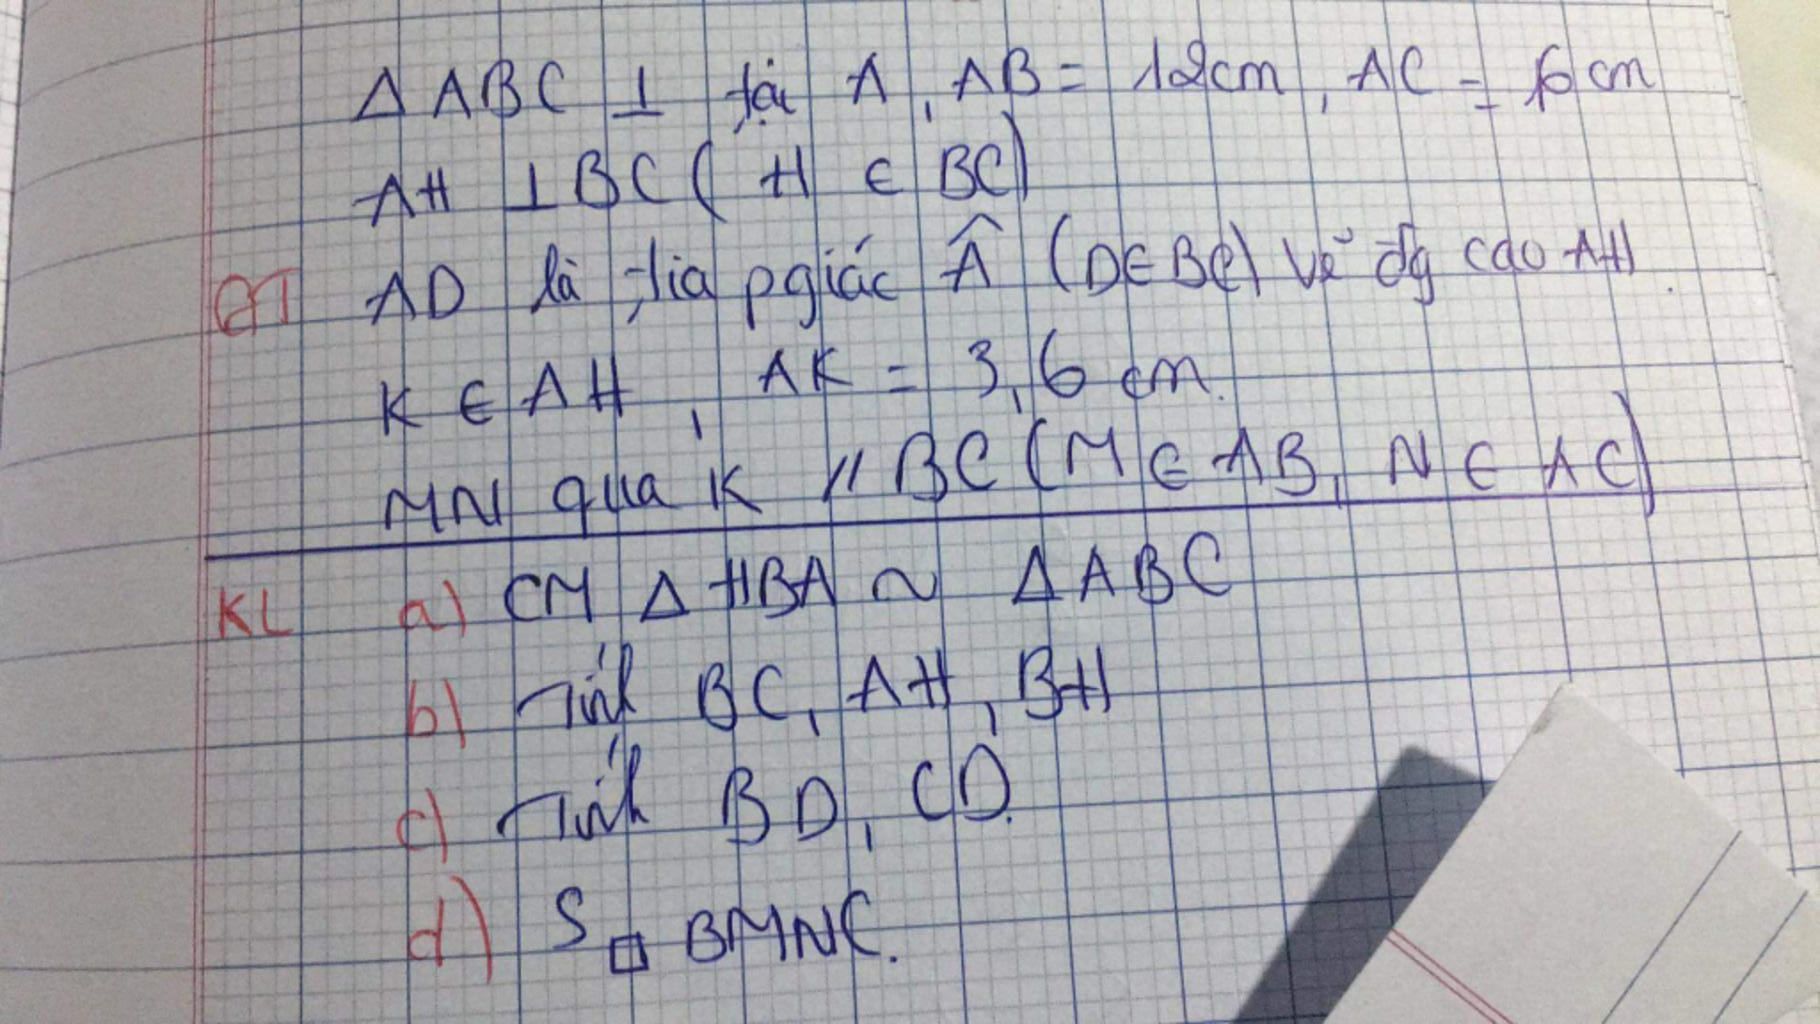 Δ ABC ⊥ tại A, AB = 12cm, AC = 16cm
AH ⊥ BC ( H ∈ BC)
GT AD là tia pgiác Â (D∈BC) vẽ đg cao AH.
K ∈ AH, AK = 3,6 cm.
MN qua K // BC (M ∈ AB, N ∈ AC)
KL a) CM Δ HBA ~ Δ ABC
b) Tính BC, AH, BH
c) Tính BD, CD.
d) S □ BMNC.